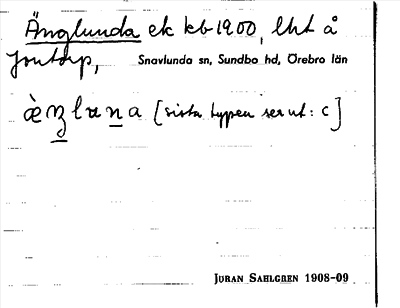 Änglunda ek kb 1900, lht å
Jontorp, Snavlunda sn, Sundbo hd, Örebro län
[sista typen ser ut: c]
JURAN SAHLGREN 1908-09